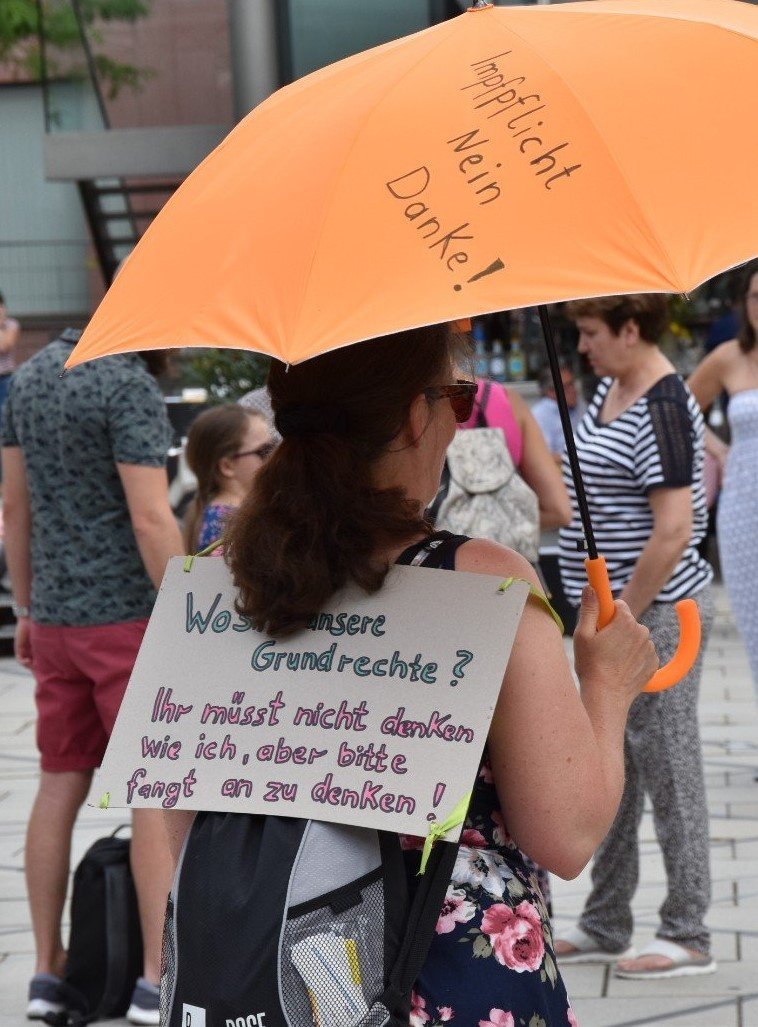 Impfpflicht
Nein
Danke!
unsere
Grundrechte?
Ihr müsst nicht denken
wie ich, aber bitte
fangt an zu denken!